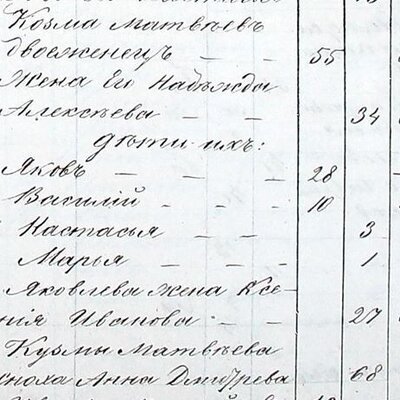 Козма Матвѣевъ
двоеженецъ — — 55
Жена Его Надѣжда
Алексѣева — — 34
дѣти ихъ:
Яковъ — — — 28
Василій — — 10
Настасья — — 3
Марья — — — 1
Яковлева жена Ксе-
нія Иванова — — 27
Кузмы Матвѣева
сноха Анна Дмитрева 68